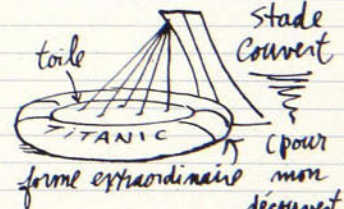 stade
couvert
toile
TITANIC
forme extraordinaire
(pour
mon
découvert